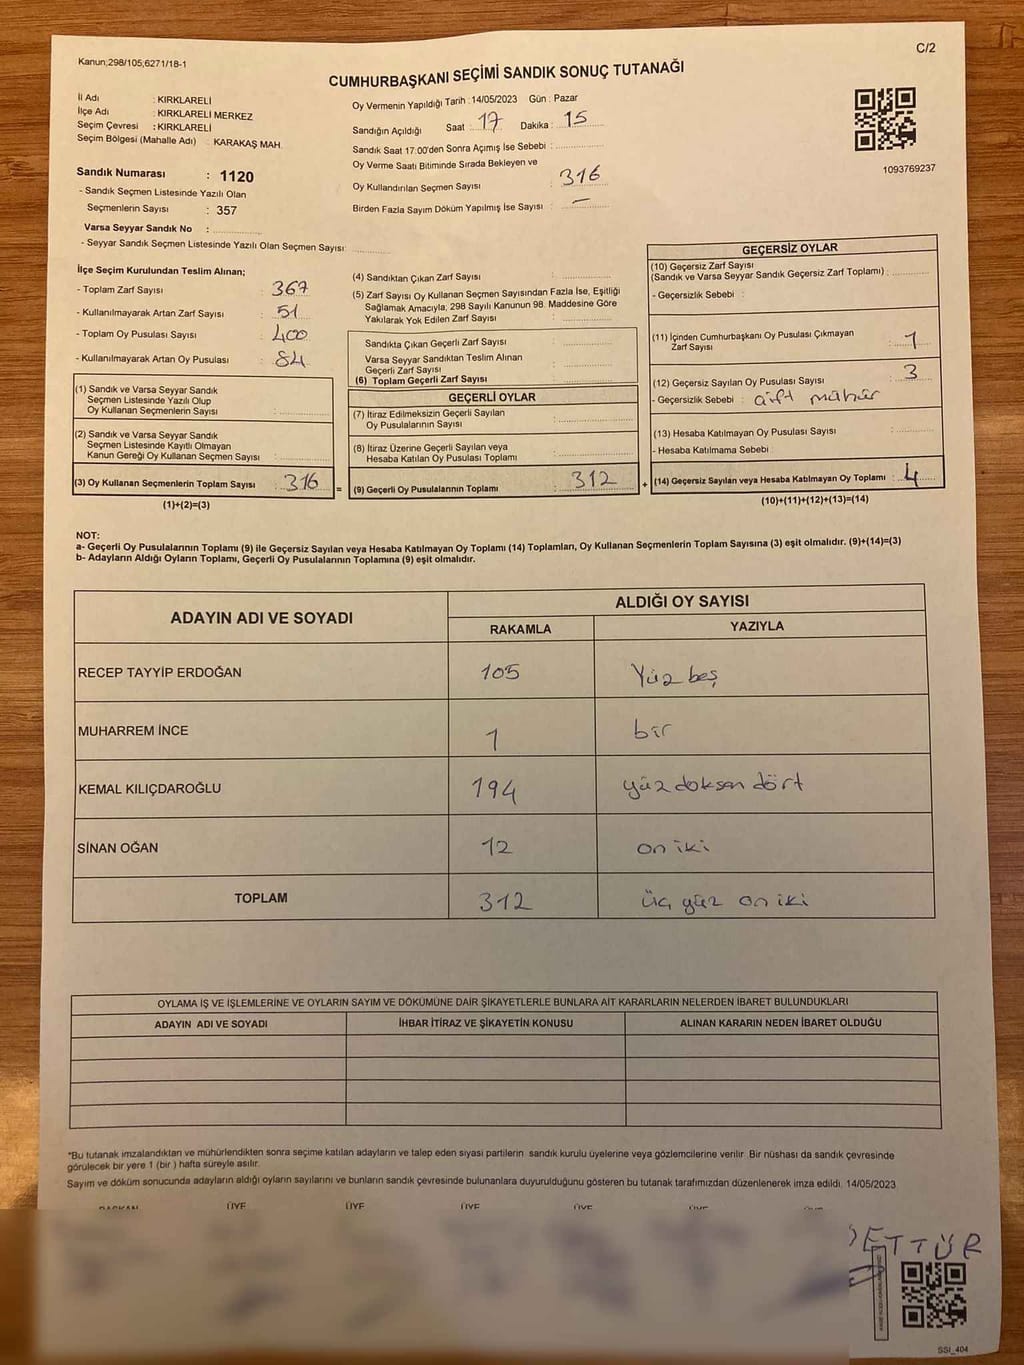 Kanun;298/105;6271/18-1
C/2
CUMHURBAŞKANI SEÇİMİ SANDIK SONUÇ TUTANAĞI
İl Adı : KIRKLARELİ
İlçe Adı : KIRKLARELİ MERKEZ
Seçim Çevresi : KIRKLARELİ
Seçim Bölgesi (Mahalle Adı) : KARAKAŞ MAH.
Sandık Numarası : 1120
- Sandık Seçmen Listesinde Yazılı Olan
Seçmenlerin Sayısı : 357
Varsa Seyyar Sandık No :
- Seyyar Sandık Seçmen Listesinde Yazılı Olan Seçmen Sayısı:
Oy Vermenin Yapıldığı Tarih :14/05/2023 Gün : Pazar
Sandığın Açıldığı Saat : 17 Dakika : 15
Sandık Saat 17:00'den Sonra Açımış İse Sebebi :
Oy Verme Saati Bitiminde Sırada Bekleyen ve
Oy Kullandırılan Seçmen Sayısı : 316
Birden Fazla Sayım Döküm Yapılmış İse Sayısı : —
1093769237
İlçe Seçim Kurulundan Teslim Alınan;
- Toplam Zarf Sayısı : 367
- Kullanılmayarak Artan Zarf Sayısı : 51
- Toplam Oy Pusulası Sayısı : 400
- Kullanılmayarak Artan Oy Pusulası : 84
(1) Sandık ve Varsa Seyyar Sandık
Seçmen Listesinde Yazılı Olup
Oy Kullanan Seçmenlerin Sayısı :
(2) Sandık ve Varsa Seyyar Sandık
Seçmen Listesinde Kayıtlı Olmayan
Kanun Gereği Oy Kullanan Seçmen Sayısı :
(3) Oy Kullanan Seçmenlerin Toplam Sayısı : 316
(1)+(2)=(3)
(4) Sandıktan Çıkan Zarf Sayısı :
(5) Zarf Sayısı Oy Kullanan Seçmen Sayısından Fazla İse, Eşitliği
Sağlamak Amacıyla, 298 Sayılı Kanunun 98. Maddesine Göre
Yakılarak Yok Edilen Zarf Sayısı :
Sandıkta Çıkan Geçerli Zarf Sayısı :
Varsa Seyyar Sandıktan Teslim Alınan
Geçerli Zarf Sayısı :
(6) Toplam Geçerli Zarf Sayısı :
GEÇERLİ OYLAR
(7) İtiraz Edilmeksizin Geçerli Sayılan
Oy Pusulalarının Sayısı :
(8) İtiraz Üzerine Geçerli Sayılan veya
Hesaba Katılan Oy Pusulası Toplamı :
= (9) Geçerli Oy Pusulalarının Toplamı : 312
GEÇERSİZ OYLAR
(10) Geçersiz Zarf Sayısı
(Sandık ve Varsa Seyyar Sandık Geçersiz Zarf Toplamı) :
- Geçersizlik Sebebi :
(11) İçinden Cumhurbaşkanı Oy Pusulası Çıkmayan
Zarf Sayısı : 1
(12) Geçersiz Sayılan Oy Pusulası Sayısı : 3
- Geçersizlik Sebebi : çift mühür
(13) Hesaba Katılmayan Oy Pusulası Sayısı :
- Hesaba Katılmama Sebebi :
+ (14) Geçersiz Sayılan veya Hesaba Katılmayan Oy Toplamı : 4
(10)+(11)+(12)+(13)=(14)
NOT:
a- Geçerli Oy Pusulalarının Toplamı (9) ile Geçersiz Sayılan veya Hesaba Katılmayan Oy Toplamı (14) Toplamları, Oy Kullanan Seçmenlerin Toplam Sayısına (3) eşit olmalıdır. (9)+(14)=(3)
b- Adayların Aldığı Oyların Toplamı, Geçerli Oy Pusulalarının Toplamına (9) eşit olmalıdır.
ADAYIN ADI VE SOYADI
ALDIĞI OY SAYISI
RAKAMLA YAZIYLA
RECEP TAYYİP ERDOĞAN 105 Yüz beş
MUHARREM İNCE 1 bir
KEMAL KILIÇDAROĞLU 194 yüz doksan dört
SİNAN OĞAN 12 on iki
TOPLAM 312 üç yüz on iki
OYLAMA İŞ VE İŞLEMLERİNE VE OYLARIN SAYIM VE DÖKÜMÜNE DAİR ŞİKAYETLERLE BUNLARA AİT KARARLARIN NELERDEN İBARET BULUNDUKLARI
ADAYIN ADI VE SOYADI İHBAR İTİRAZ VE ŞİKAYETİN KONUSU ALINAN KARARIN NEDEN İBARET OLDUĞU
*Bu tutanak imzalandıktan ve mühürlendikten sonra seçime katılan adayların ve talep eden siyasi partilerin sandık kurulu üyelerine veya gözlemcilerine verilir. Bir nüshası da sandık çevresinde
görülecek bir yere 1 (bir ) hafta süreyle asılır.
Sayım ve döküm sonucunda adayların aldığı oyların sayılarını ve bunların sandık çevresinde bulunanlara duyurulduğunu gösteren bu tutanak tarafımızdan düzenlenerek imza edildi. 14/05/2023
BAŞKAN ÜYE ÜYE ÜYE ÜYE ÜYE
ETTÜR
SSI_404